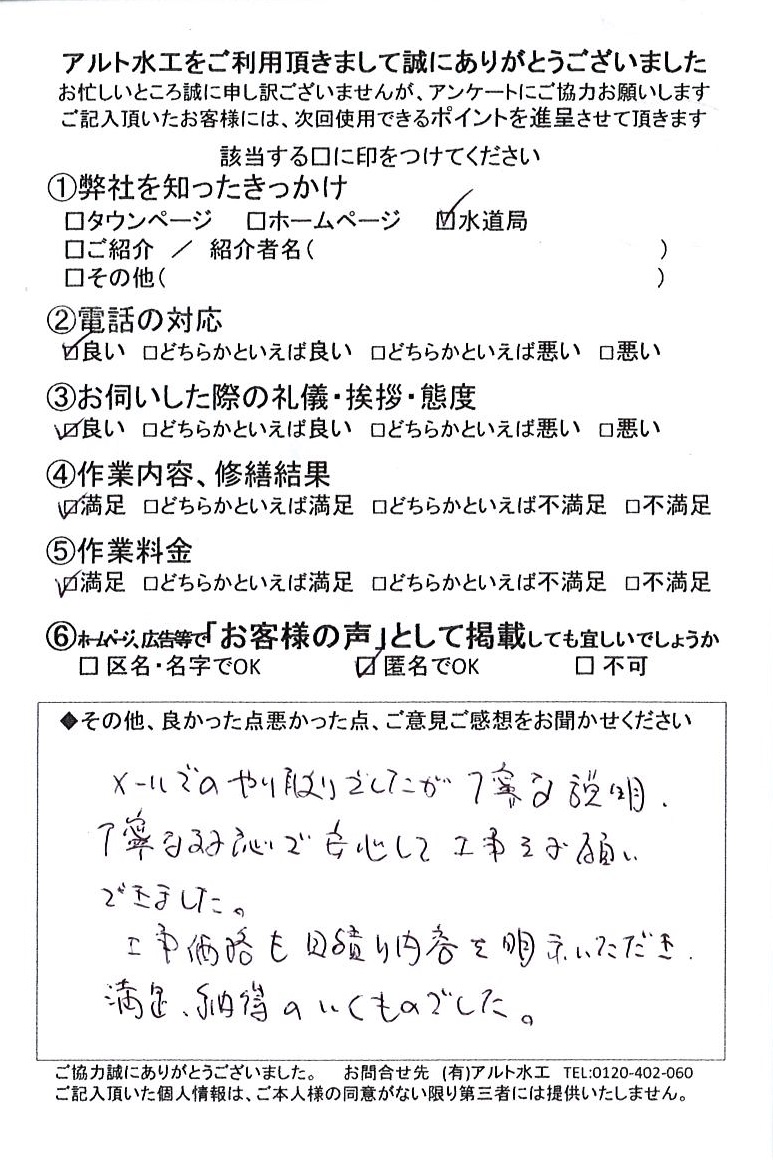 アルト水工をご利用頂きまして誠にありがとうございました
お忙しいところ誠に申し訳ございませんが、アンケートにご協力お願いします
ご記入頂いたお客様には、次回使用できるポイントを進呈させて頂きます
該当する□に印をつけてください
①弊社を知ったきっかけ
□タウンページ □ホームページ ☑水道局
□ご紹介 ／ 紹介者名( )
□その他( )
②電話の対応
☑良い □どちらかといえば良い □どちらかといえば悪い □悪い
③お伺いした際の礼儀・挨拶・態度
☑良い □どちらかといえば良い □どちらかといえば悪い □悪い
④作業内容、修繕結果
☑満足 □どちらかといえば満足 □どちらかといえば不満足 □不満足
⑤作業料金
☑満足 □どちらかといえば満足 □どちらかといえば不満足 □不満足
⑥ホームページ、広告等で「お客様の声」として掲載しても宜しいでしょうか
□ 区名・名字でOK ☑ 匿名でOK □ 不可
◆その他、良かった点悪かった点、ご意見ご感想をお聞かせください
メールでのやり取りでしたが丁寧な説明、
丁寧な対応で安心して工事をお願い
できました。
工事価格も見積り内容を明示いただき、
満足、納得のいくものでした。
ご協力誠にありがとうございました。 お問合せ先 (有)アルト水工 TEL:0120-402-060
ご記入頂いた個人情報は、ご本人様の同意がない限り第三者には提供いたしません。